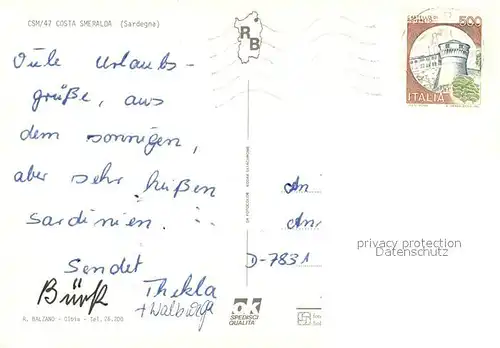 CSM/47 COSTA SMERALDA (Sardegna)
Viele Urlaubs-
grüße, aus
dem sonnigen,
aber sehr heißen
Sardinien.
Sendet
Thekla
+ Walburga
R. BALZANO - Olbia - Tel. 26.300
RB
500
ITALIA
An
An
D-7831
privacy protection
Datenschutz
OK
SPEDISCI
QUALITÀ